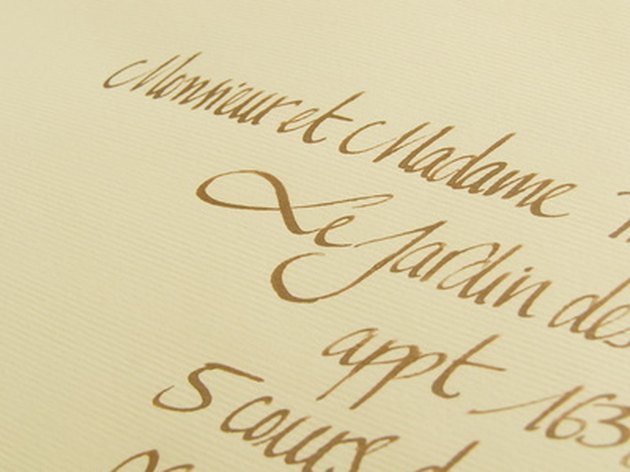 Monsieur et Madame
Le Jardin des
appt. 163
5 cours